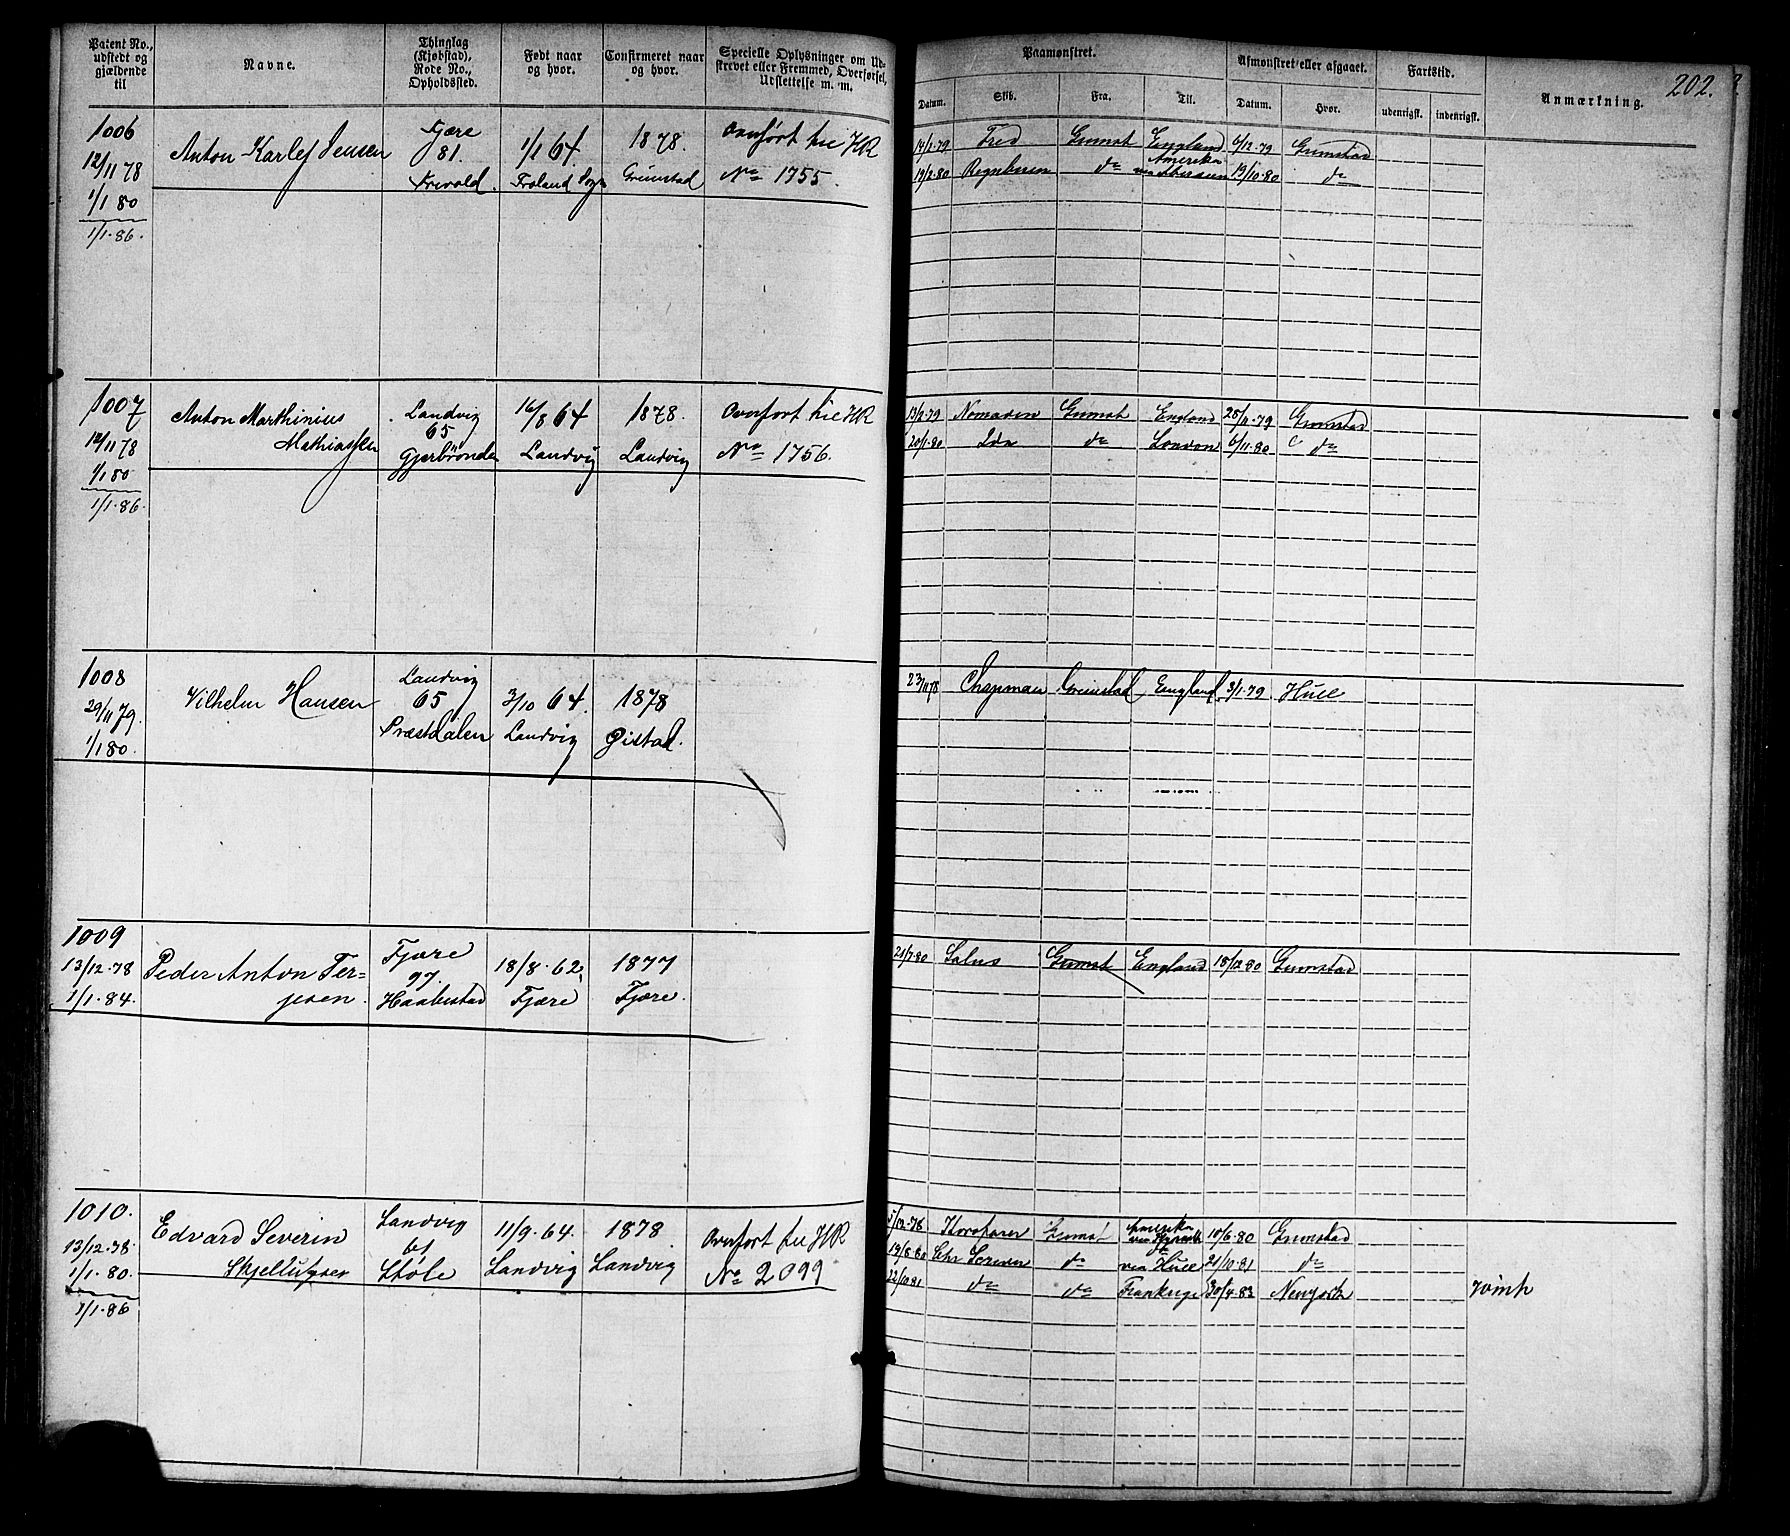 202.
Patent No., udstedt og gjældende til
Navne.
Thinglag (Kjøbstad), Rode No., Opholdssted.
Født naar og hvor.
Confirmeret naar og hvor.
Specielle Oplysninger om Udskrevet eller Fremmed, Overførsel, Udslettelse m. m.
Paamønstret.
Datum.
Skib.
Fra.
Til.
Afmønstret eller afgaaet.
Datum.
Hvor.
Fartstid.
udenrigsk.
indenrigsk.
Anmærkning.
1006
12/11 78
1/1 80
1/1.86.
Anton Karlef Jensen
Fjære
81.
Frivold.
1/1 64.
Froland Sogn
1878.
Grimstad
Overført til HR
No 1755.
14/1.79 Fred Grimst England 4/12.79 Grimstad
19/2.80 do Amerika 19/10.80 do
1007
12/11 78
1/1 80
1/1.86.
Anton Marthinius
Mathiassen
Landvig
65
16/8 64
Landvig
1878.
Landvig
Overført til HR
No 1756.
13/2.79 Nomaden Grimst England 25/11.79 Grimstad
20/1.80 Ida do London 6/11.80 do
1008
29/11 79.
1/1 80.
Vilhelm Hansen
Landvig
65
Præstdalen
3/10 64.
Landvig
1878
Øistad.
23/11 78 Chapman Grimstad England 3/1.79 Hull
1009
13/12.78
1/1.84.
Peder Anton Ter-
jesen.
Fjære
97.
Haabestad
18/8.62.
Fjære
1877
Fjære.
21/7.80 Salus Grimst England 18/12.80 Grimstad
1010.
13/12.78.
1/1.80.
1/1.86
Edvard Severin
Landvig
61
Støle
11/9.64.
Landvig
1878
Landvig
Overført til HR
No 2099
Grimst Amerika 10/6.80 Grimstad
19/8.80 do via Hull 21/10.81 do
22/10 81 do do Frankrige 30/4.83 Newyork rømt